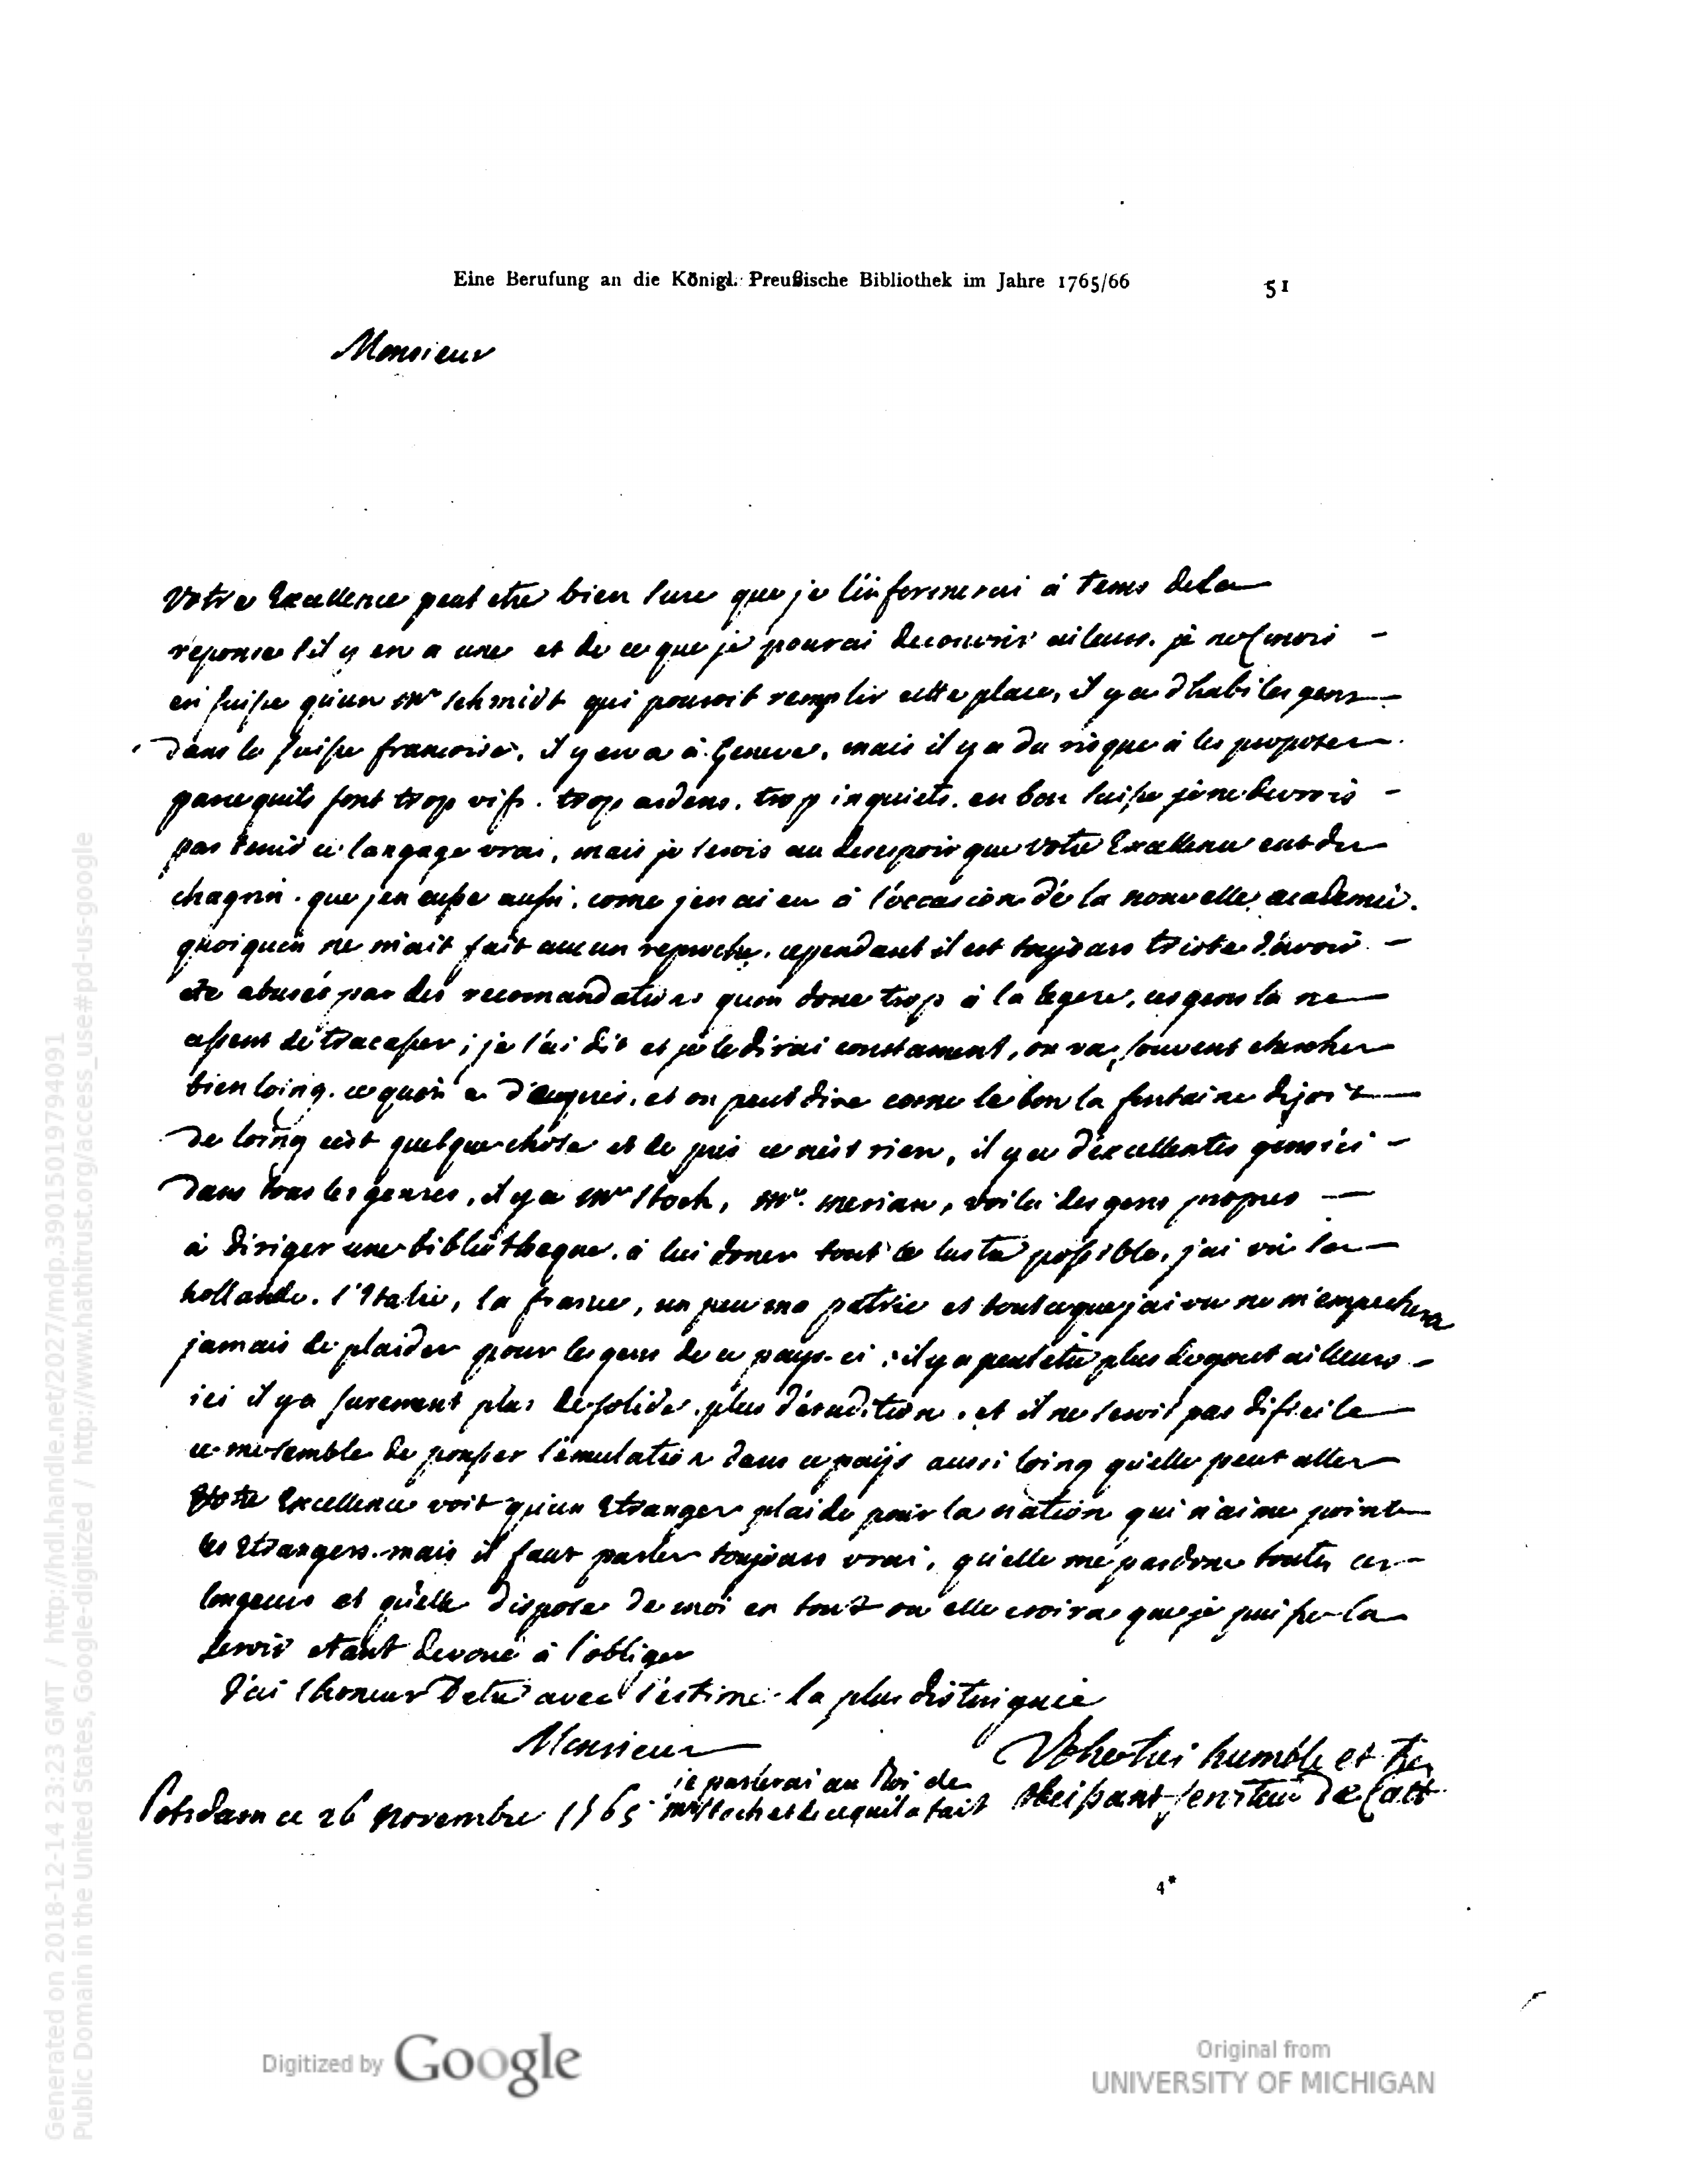 Eine Berufung an die Königl. Preußische Bibliothek im Jahre 1765/66 51
Monsieur
Votre Excellence peut etre bien sure que je l'informerai à tems de la
reponse s'il y en a une et de ce que je pourai decouvrir ailleurs. je ne conois
en suisse qu'un Mr Schmidt qui pouroit remplir cette place, il y a d'habiles gens
dans la suisse francoise, il y en a à Geneve, mais il y a du risque à les proposer
parcequ'ils sont trop vifs. trop ardens. trop inquiets. en bon suisse je ne devrois
pas tenir ce langage vrai, mais je serois au desespoir que votre Excellence eut du
chagrin. que j'en eusse aussi. come j'en ai eu à l'occasion de la nouvelle academie.
quoiqu'on ne m'ait fait aucun reproche. cependant il est toujours triste d'avoir
été abusés par des recomandations qu'on done trop à la legere, ces gens la ne
cessent de tracasser; je l'ai dit et je le dirai constament, on va souvent chercher
bien loing. ce qu'on a d'auprès. et on peut dire come le bon la fontaine disoit
de loing c'est quelque chose et de près ce n'est rien, il y a d'excellentes gens ici
dans tous les genres, il y a Mr Stoch, Mr. merian, voila des gens propres
à diriger une bibliotheque. à lui doner tout le lustre possible, j'ai vû la
hollande. l'Italie, la france, un peu ma patrie et tout ce que j'ai vu ne m'empechera
jamais de plaider pour les gens de ce pays-ci: il y a peut etre plus de gout ailleurs
ici il y a surement plus de solide. plus d'erudition. et il ne seroit pas dificile
ce me semble de pousser l'emulation dans ce païs aussi loing qu'elle peut aller
Votre Excellence voit qu'un Etranger plaide pour la nation qui n'aime point
les Etrangers. mais il faut parler toujours vrai, qu'elle me pardone toutes ces
longeurs et qu'elle dispose de moi en tout ou elle croira que je puisse la
servir etant devoué à l'obliger
J'ai l'honeur d'etre avec l'estime la plus distinguée
Monsieur
Votre tres humble et tres
obeissant serviteur de Catt
je parlerai au Roi de
mr Stoch et de ce qu'il a fait
Potsdam ce 26 Novembre 1765
4*
Generated on 2018-12-14 23:23 GMT / http://hdl.handle.net/2027/mdp.39015019794091
Public Domain in the United States, Google-digitized / http://www.hathitrust.org/access_use#pd-us-google
Digitized by Google
Original from
UNIVERSITY OF MICHIGAN